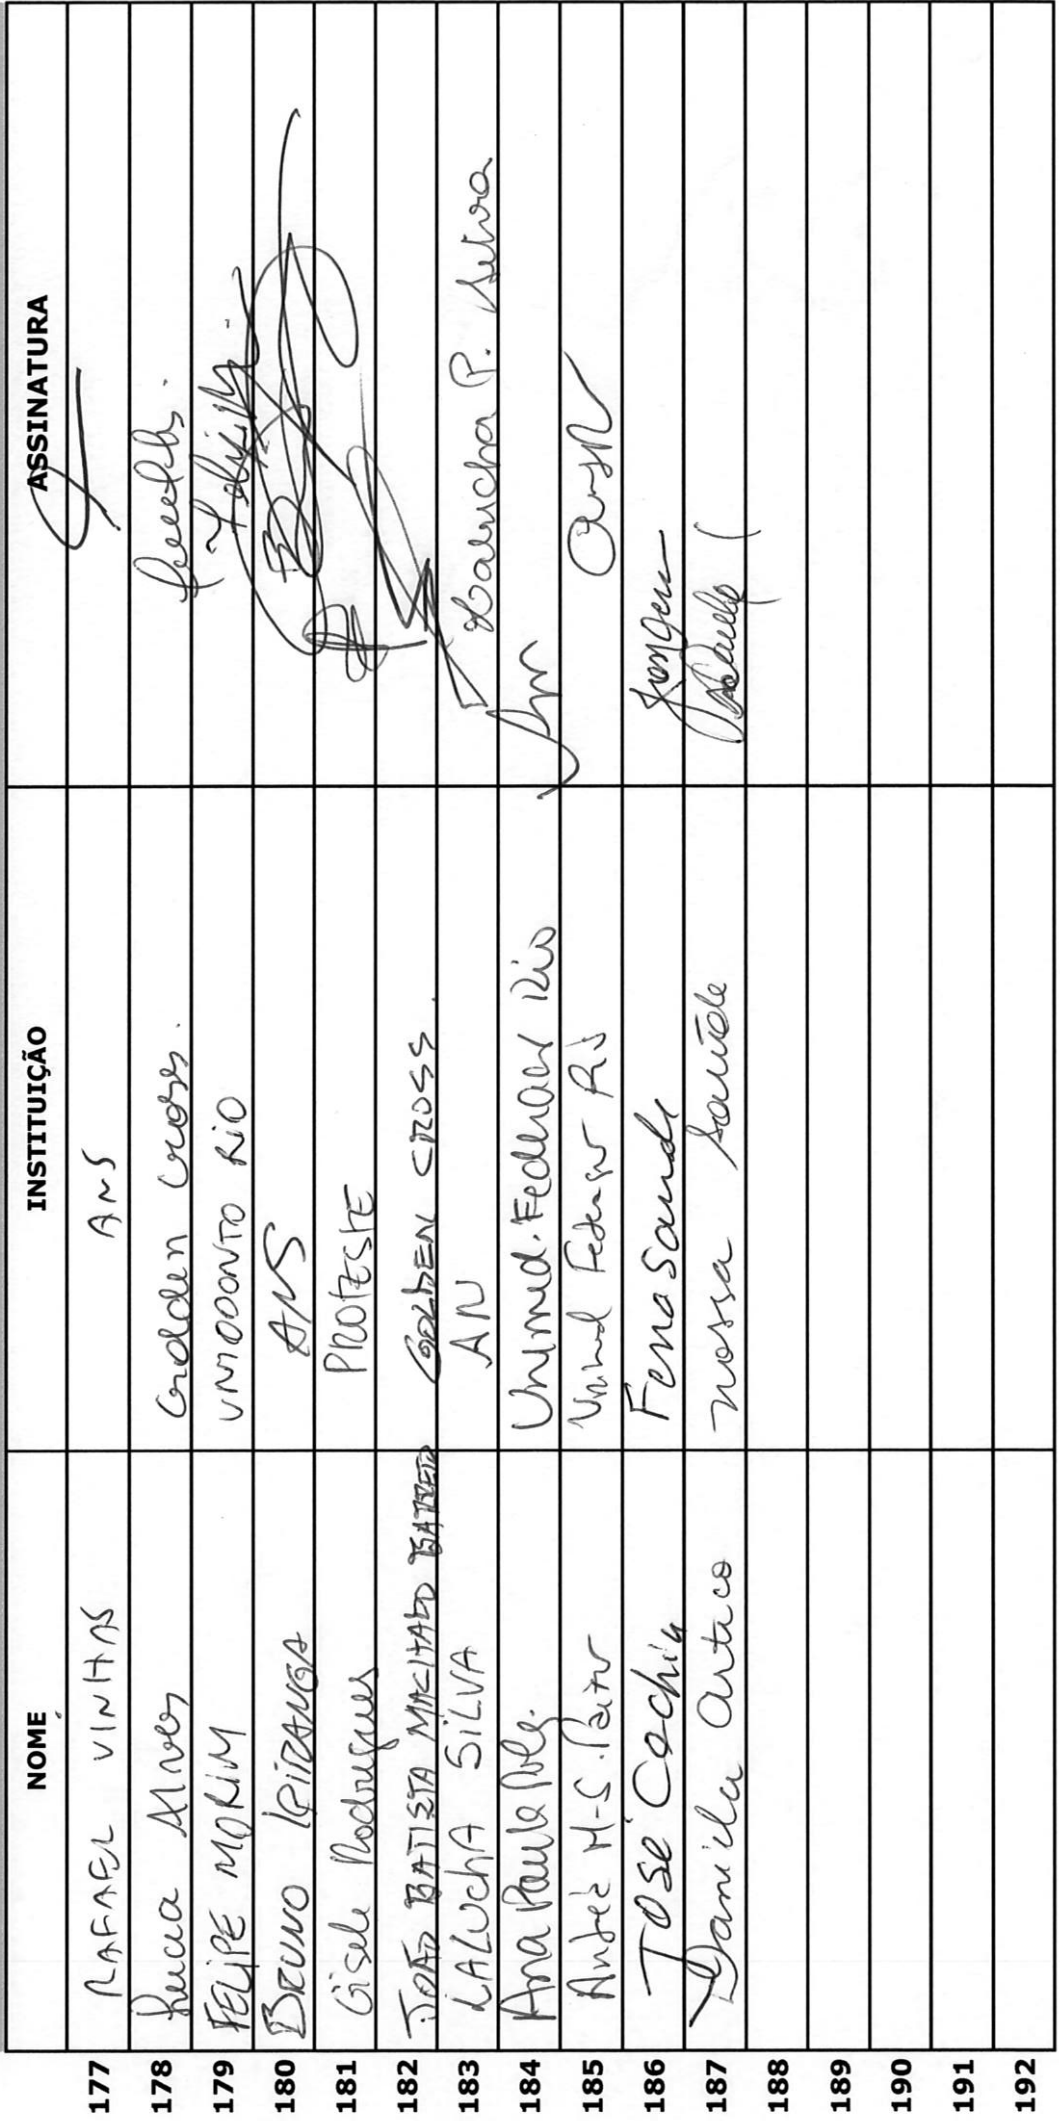 NOME INSTITUIÇÃO ASSINATURA
177 RAFAEL VINHAS ANS
178 Lucia Alves Golden Cross.
179 FELIPE MORIM UNIODONTO RIO
180 BRUNO IPIRANGA ANS
181 Gisele Rodrigues PROTESTE
182 JOÃO BATISTA MACHADO GOLDEN CROSS
183 LALUCHA SILVA AN Lalucha P. Silva
184 Ana Paula Unimed. Federação Rio
185 André M-S. Unimed RJ
186 José Cechin FenaSaúde
187 Daniela Artico nossa saúde
188
189
190
191
192